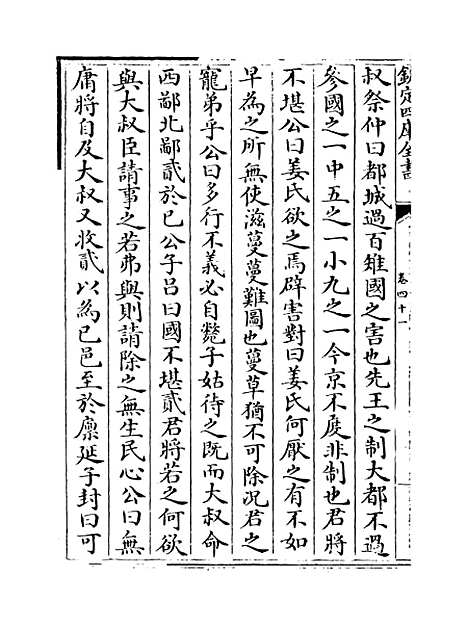 欽定四庫全書
卷四十一
叔祭仲曰都城過百雉國之害也先王之制大都不過
參國之一中五之一小九之一今京不度非制也君將
不堪公曰姜氏欲之焉辟害對曰姜氏何厭之有不如
早為之所無使滋蔓蔓難圖也蔓草猶不可除况君之
寵弟乎公曰多行不義必自斃子姑待之既而大叔命
西鄙北鄙貳於已公子吕曰國不堪貳君將若之何欲
與大叔臣請事之若弗與則請除之無生民心公曰無
庸將自及大叔又收貳以為已邑至於廪延子封曰可